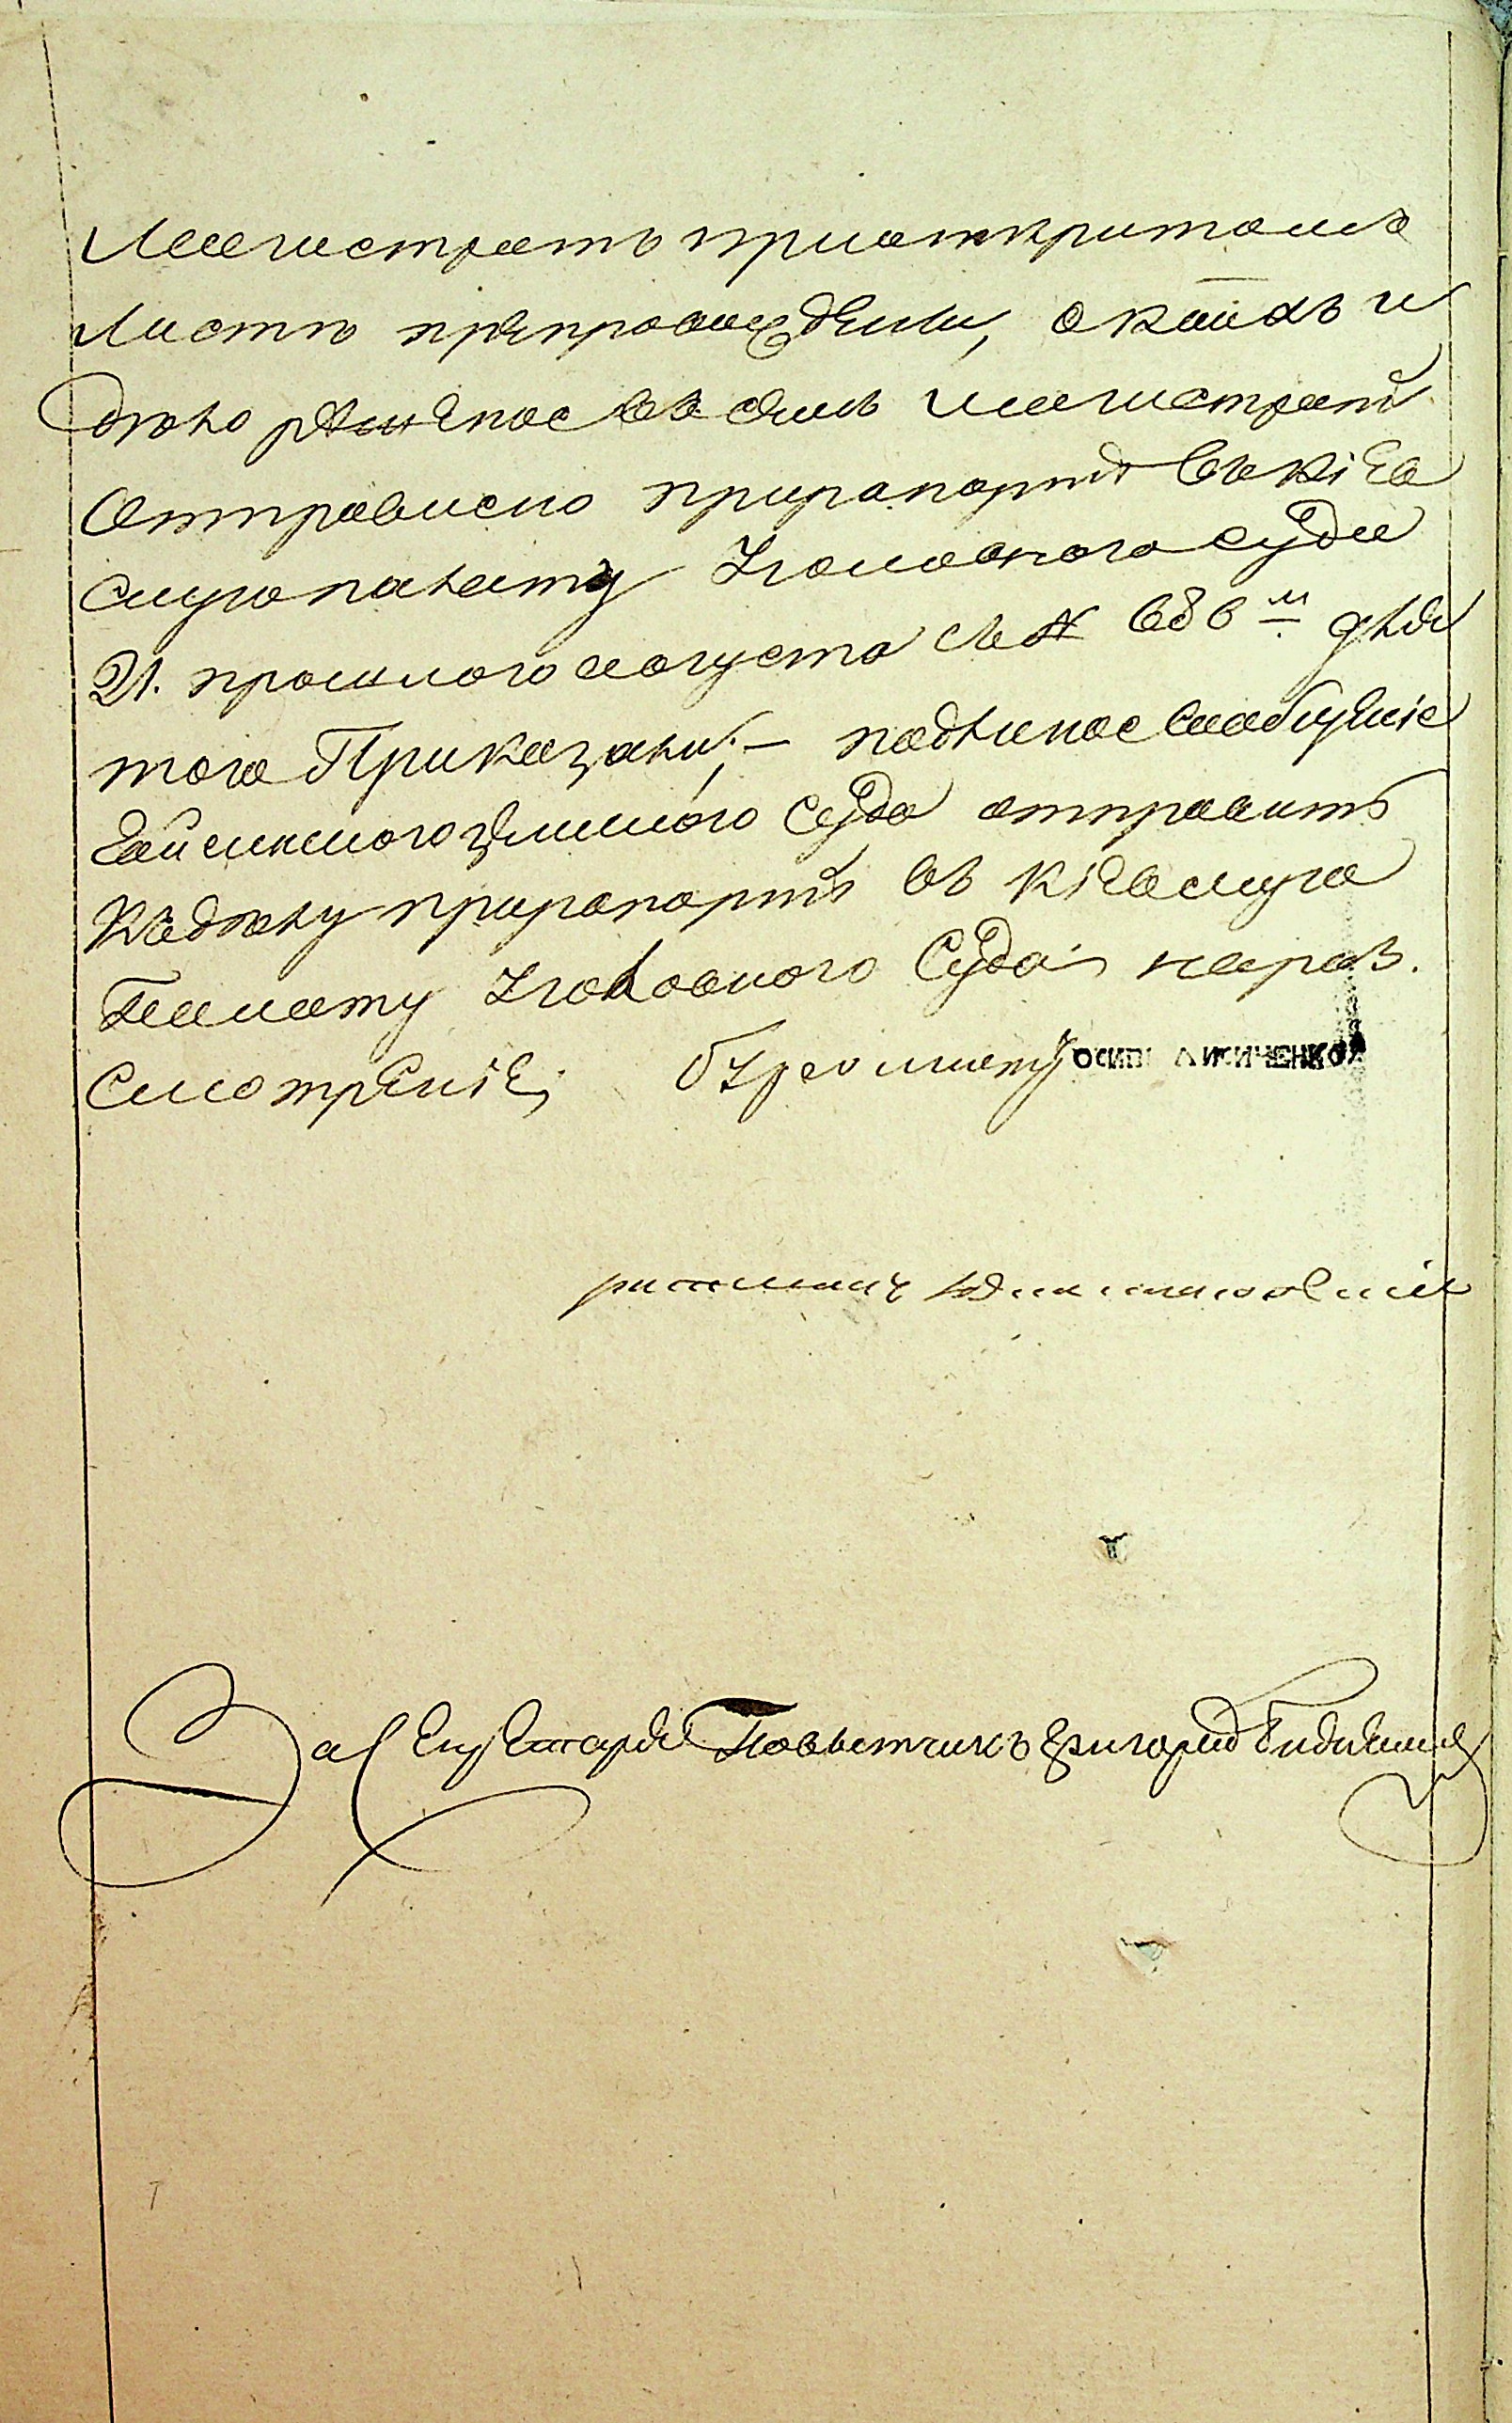 Магистратъ приоткритомъ
Листѣ препровождены, о коихъ и
дѣло решеное въ семъ магистратѣ
отправлено прирапортѣ въ кіев
скую палату Уголовного суда
21. прошлого августа съ № 686 м для
того Приказали; — подлиное сообщеніе
Гайсинского земского Суда отправить
къделу прирапортѣ въ кіевскую
Палату Уголовного Суда на раз.
смотреніе; Бурмистръ ОСИПЪ ЛИСИЧЕНКО
ратманъ
За Секретаря Повытчикъ Григорий